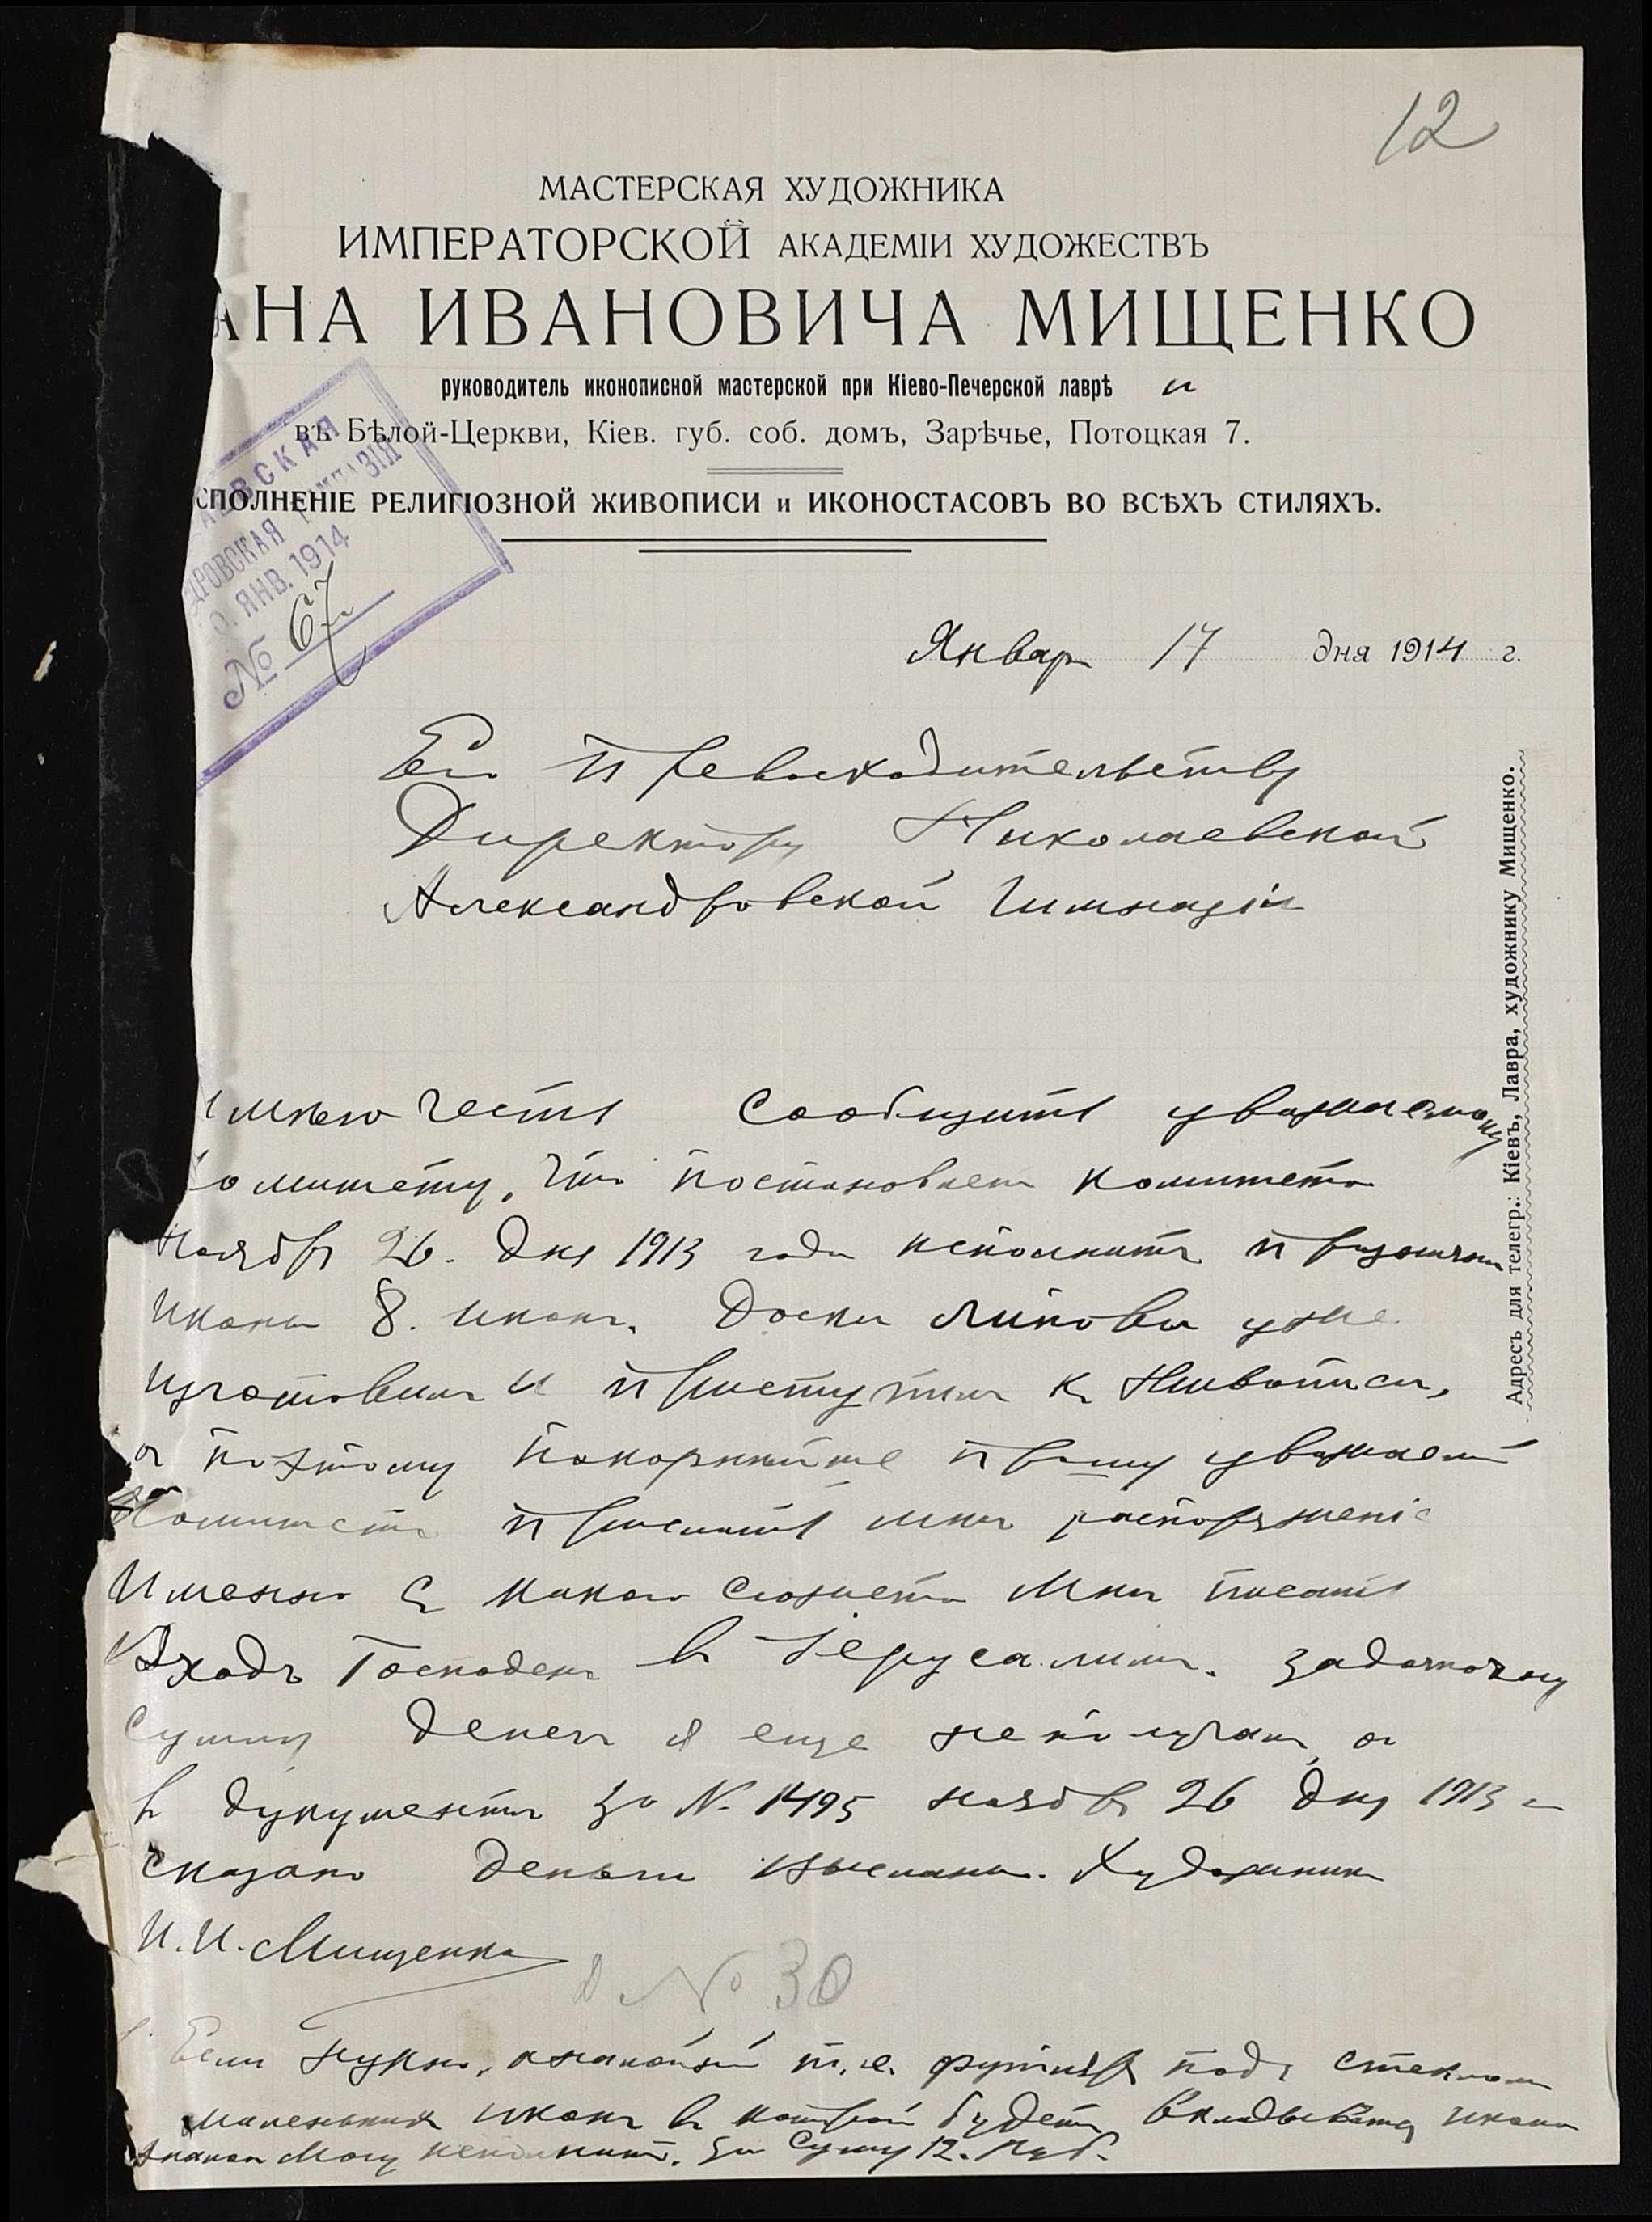 12
МАСТЕРСКАЯ ХУДОЖНИКА
ИМПЕРАТОРСКОЙ АКАДЕМІИ ХУДОЖЕСТВЪ
АНА ИВАНОВИЧА МИЩЕНКО
руководитель иконописной мастерской при Кіево-Печерской лаврѣ и
въ Бѣлой-Церкви, Кіев. губ. соб. домъ, Зарѣчье, Потоцкая 7.
СПОЛНЕНІЕ РЕЛИГІОЗНОЙ ЖИВОПИСИ и ИКОНОСТАСОВЪ ВО ВСѢХЪ СТИЛЯХЪ.
АЕВСКАЯ
ДРОВСКАЯ ГИМНАЗІЯ
ЯНВ. 1914
№ 67
Январ 17 дня 1914 г.
Его Превосходительству
Директору Николаевской
Александровской Гимназіи
Адресъ для телегр.: Кіевъ, Лавра, художнику Мищенко.
имѣю честь сообщить уважаемому
омитету, что постановлен комитета
Ноябр 26. дня 1913 года исполнить
иконы 8. икон. Доски липовы уже
изготовил и приступил к живописи,
а поэтому покорнейше прошу уважаем
Комитет прислать мнѣ распоряженіе
Именно с какого сюжета мнѣ писать
Входъ Господен в Іерусалим. задаточну
сумму денег я еще не получал, а
в дукументѣ за №. 1495 ноябр 26 дня 1913 г
сказано деньги высланы. Художник
И. И. Мищенко
№ 30
Если нужно, аналойный т. е. футляр подъ стеклом
маленьких икон в которой будет вкладыватца икона
аналой могу исполнить. за сумму 12. руб.